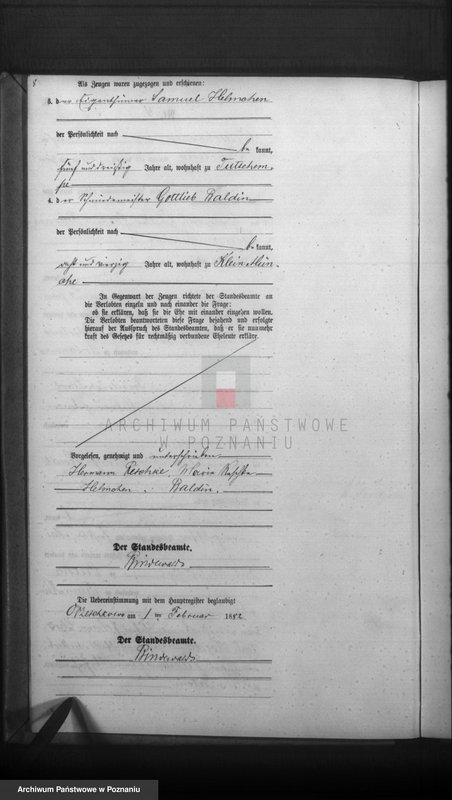 8
Als Zeugen waren zugezogen und erschienen:
3. der Eigenthümer Samuel Helmchen
der Persönlichkeit nach
be kannt,
fünf und dreißig Jahre alt, wohnhaft zu Tutschem-
pe
4. der Schmiedemeister Gottlieb Baldin
der Persönlichkeit nach
be kannt,
acht und vierzig Jahre alt, wohnhaft zu Klein
In Gegenwart der Zeugen richtete der Standesbeamte an
die Verlobten einzeln und nach einander die Frage:
ob sie erklären, daß sie die Ehe mit einander eingehen wollen.
Die Verlobten beantworteten diese Frage bejahend und erfolgte
hierauf der Ausspruch des Standesbeamten, daß er sie nunmehr
kraft des Gesetzes für rechtmäßig verbundene Eheleute erkläre.
ARCHIWUM PAŃSTWOWE
W POZNANIU
Vorgelesen, genehmigt und unterschrieben
Hermann Reschke, Maria
Helmchen. Baldin.
Der Standesbeamte.
Die Uebereinstimmung mit dem Hauptregister beglaubigt
am 1 ten Februar 1882
Der Standesbeamte.
Archiwum Państwowe w Poznaniu